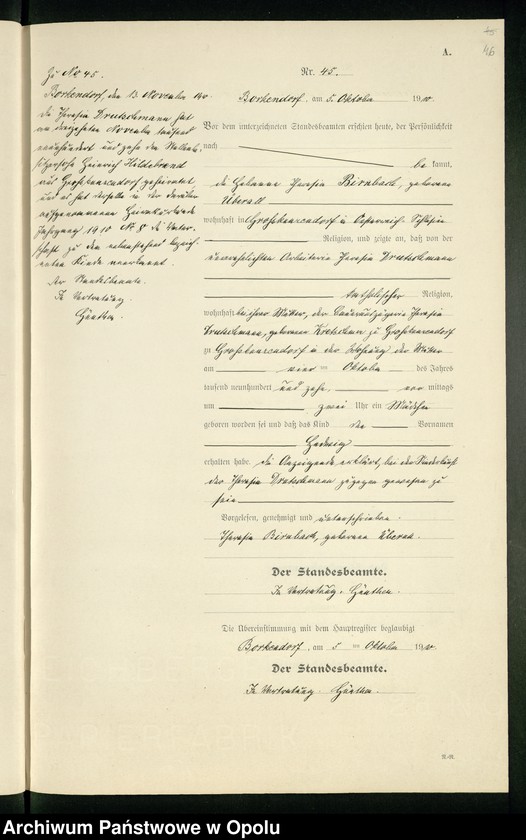 46
A.
Zu No 45.
Borkendorf, den 13. November 1910
die Theresia Drutschmann hat
am dreizehnten November tausend
neunhundert und zehn den Stellenbe-
sitzersohn Heinrich Hildebrand
aus Großkunzendorf geheiratet
und es hat derselbe in der darüber
aufgenommenen Heiratsurkunde
Jahrgang 1910 No 8 die Vater-
schaft zu dem nebenstehend bezeich-
neten Kinde anerkannt.
Der Standesbeamte.
In Vertretung
Günther.
Nr. 45.
Borkendorf, am 5. Oktober 1910
Vor dem unterzeichneten Standesbeamten erschien heute, der Persönlichkeit
nach
bekannt,
die Hebamme Theresia Birnbach, geborene
wohnhaft in Großkunzendorf in Österreich. Schlesien
Religion, und zeigte an, daß von der
unverehelichten Arbeiterin Theresia Drutschmann
katholischer Religion,
wohnhaft bei ihrer Mutter, der Theresia
Drutschmann, geborenen zu Großkunzendorf
zu Großkunzendorf in der Wohnung der Mutter
am vier ten Oktober des Jahres
tausend neunhundert und zehn vor mittags
um zwei Uhr ein Mädchen
geboren worden sei und daß das Kind den Vornamen
Hedwig
erhalten habe. die Anzeigende erklärt, bei der Niederkunft
der Theresia Drutschmann zugegen gewesen zu
sein
Vorgelesen, genehmigt und unterschrieben.
Theresia Birnbach, geborene
Der Standesbeamte.
In Vertretung. Günther.
Die Übereinstimmung mit dem Hauptregister beglaubigt
Borkendorf, am 5 ten Oktober 1910.
Der Standesbeamte.
In Vertretung. Günther.
Archiwum Państwowe w Opolu